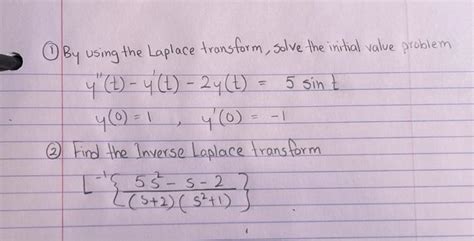 ① By using the Laplace transform, solve the initial value problem
y''(t) - y'(t) - 2y(t) = 5 sin t
y(0) = 1 , y'(0) = -1
② Find the Inverse Laplace transform
L⁻¹{ (5s² - s - 2) / ((s+2)(s²+1)) }